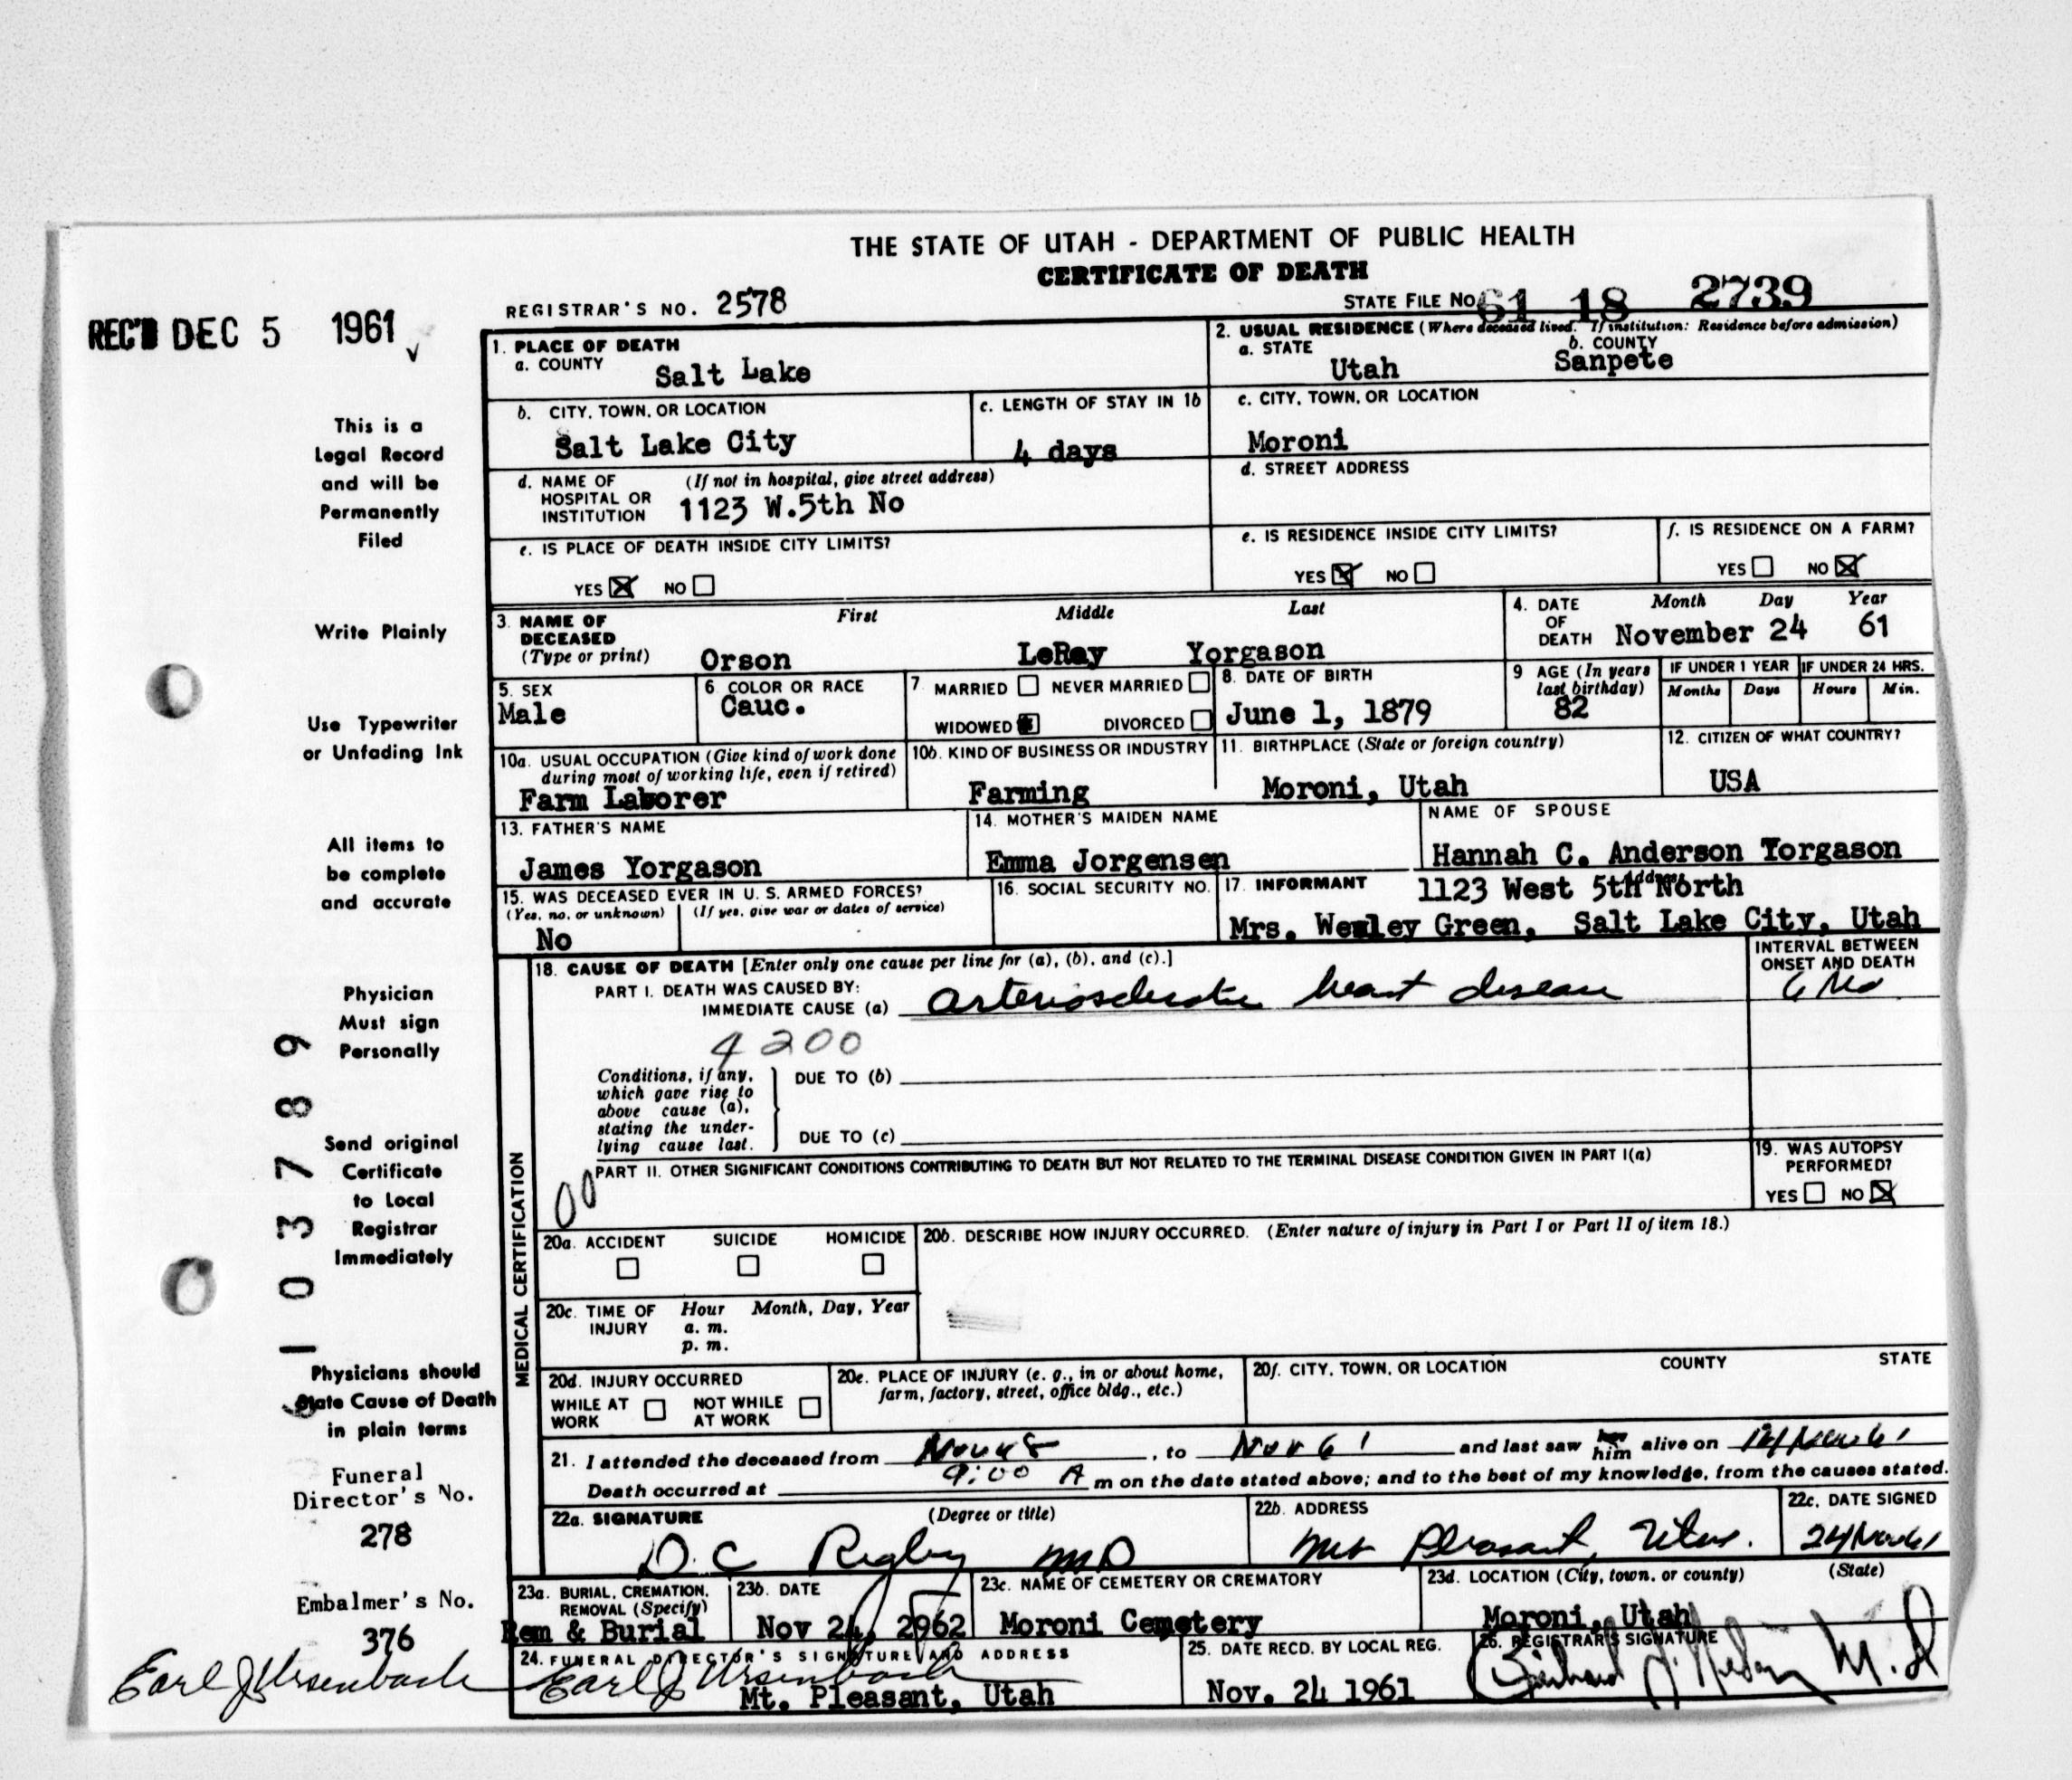 THE STATE OF UTAH - DEPARTMENT OF PUBLIC HEALTH
CERTIFICATE OF DEATH
REGISTRAR'S NO. 2578
STATE FILE NO. 61 18 2739
REC'D DEC 5 1961
1. PLACE OF DEATH
a. COUNTY
Salt Lake
2. USUAL RESIDENCE (Where deceased lived. If institution: Residence before admission)
a. STATE
Utah
b. COUNTY
Sanpete
b. CITY, TOWN, OR LOCATION
Salt Lake City
c. LENGTH OF STAY IN 1b
4 days
c. CITY, TOWN, OR LOCATION
Moroni
d. NAME OF HOSPITAL OR INSTITUTION
(If not in hospital, give street address)
1123 W.5th No
d. STREET ADDRESS
e. IS PLACE OF DEATH INSIDE CITY LIMITS?
YES NO
e. IS RESIDENCE INSIDE CITY LIMITS?
YES NO
f. IS RESIDENCE ON A FARM?
YES NO
3. NAME OF DECEASED
(Type or print)
First Middle Last
Orson LeRay Yorgason
4. DATE OF DEATH
Month Day Year
November 24 61
5. SEX
Male
6. COLOR OR RACE
Cauc.
7. MARRIED NEVER MARRIED
WIDOWED DIVORCED
8. DATE OF BIRTH
June 1, 1879
9 AGE (In years last birthday)
82
IF UNDER 1 YEAR
Months Days
IF UNDER 24 HRS.
Hours Min.
10a. USUAL OCCUPATION (Give kind of work done during most of working life, even if retired)
Farm Laborer
10b. KIND OF BUSINESS OR INDUSTRY
Farming
11. BIRTHPLACE (State or foreign country)
Moroni, Utah
12. CITIZEN OF WHAT COUNTRY?
USA
13. FATHER'S NAME
James Yorgason
14. MOTHER'S MAIDEN NAME
Emma Jorgensen
NAME OF SPOUSE
Hannah C. Anderson Yorgason
15. WAS DECEASED EVER IN U. S. ARMED FORCES?
(Yes, no, or unknown) (If yes, give war or dates of service)
No
16. SOCIAL SECURITY NO.
17. INFORMANT
Address
1123 West 5th North
Mrs. Wesley Green, Salt Lake City, Utah
MEDICAL CERTIFICATION
18. CAUSE OF DEATH [Enter only one cause per line for (a), (b), and (c).]
INTERVAL BETWEEN ONSET AND DEATH
PART I. DEATH WAS CAUSED BY:
IMMEDIATE CAUSE (a) arteriosclerotic heart disease
6 Mo
4200
Conditions, if any, which gave rise to above cause (a), stating the underlying cause last.
DUE TO (b)
DUE TO (c)
PART II. OTHER SIGNIFICANT CONDITIONS CONTRIBUTING TO DEATH BUT NOT RELATED TO THE TERMINAL DISEASE CONDITION GIVEN IN PART I(a)
00
19. WAS AUTOPSY PERFORMED?
YES NO
20a. ACCIDENT SUICIDE HOMICIDE
20b. DESCRIBE HOW INJURY OCCURRED. (Enter nature of injury in Part I or Part II of item 18.)
20c. TIME OF INJURY
Hour Month, Day, Year
a. m.
p. m.
20d. INJURY OCCURRED
WHILE AT WORK NOT WHILE AT WORK
20e. PLACE OF INJURY (e. g., in or about home, farm, factory, street, office bldg., etc.)
20f. CITY, TOWN, OR LOCATION COUNTY STATE
21. I attended the deceased from Nov 48, to Nov 61 and last saw him alive on
Death occurred at 9:00 A m on the date stated above; and to the best of my knowledge, from the causes stated.
22a. SIGNATURE (Degree or title)
D. C Rigby MD
22b. ADDRESS
Mt Pleasant, Utah.
22c. DATE SIGNED
24 Nov 61
23a. BURIAL, CREMATION, REMOVAL (Specify)
Rem & Burial
23b. DATE
Nov 24, 2962
23c. NAME OF CEMETERY OR CREMATORY
Moroni Cemetery
23d. LOCATION (City, town, or county) (State)
Moroni, Utah
24. FUNERAL DIRECTOR'S SIGNATURE AND ADDRESS
Earl J Ursenbach
Mt. Pleasant, Utah
25. DATE RECD. BY LOCAL REG.
Nov. 24 1961
26. REGISTRAR'S SIGNATURE
M. D
This is a
Legal Record
and will be
Permanently
Filed
Write Plainly
Use Typewriter
or Unfading Ink
All items to
be complete
and accurate
Physician
Must sign
Personally
Send original
Certificate
to Local
Registrar
Immediately
Physicians should
State Cause of Death
in plain terms
Funeral
Director's No.
278
Embalmer's No.
376
Earl J Ursenbach
6103789